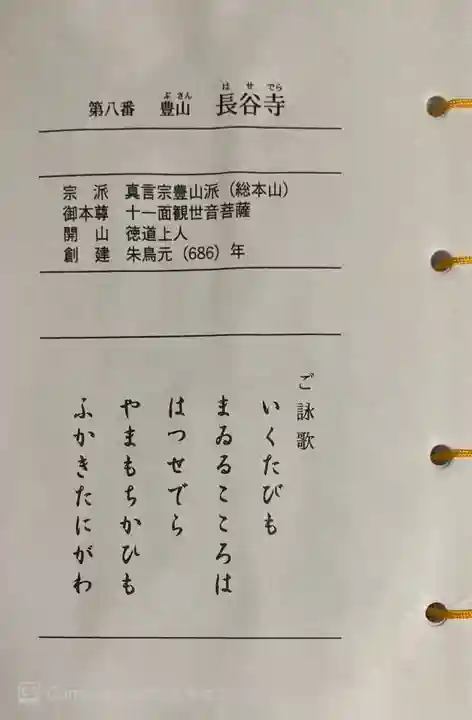 第八番 豊山 長谷寺
ぶさん はせでら
宗派 真言宗豊山派（総本山）
御本尊 十一面観世音菩薩
開山 徳道上人
創建 朱鳥元（686）年
ご詠歌
いくたびも
まゐるこころは
はつせでら
やまもちかひも
ふかきたにがわ